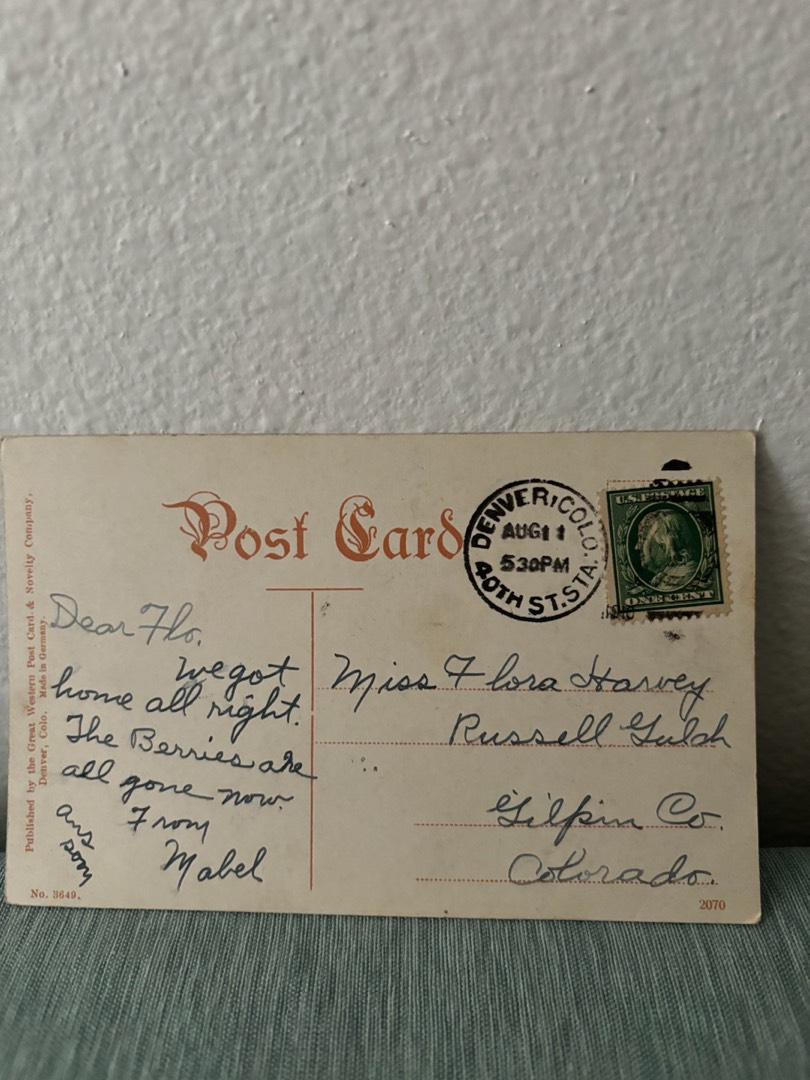 Post Card
DENVER, COLO.
AUG 11
530PM
40TH ST. STA.
U.S. POSTAGE
ONE CENT
Dear Flo.
We got
home all right.
The Berries are
all gone now.
From
Mabel
Ans
soon
Miss Flora Harvey
Russell Gulch
Gilpin Co.
Colorado.
Published by the Great Western Post Card & Novelty Company,
Denver, Colo. Made in Germany.
No. 3649.
2070